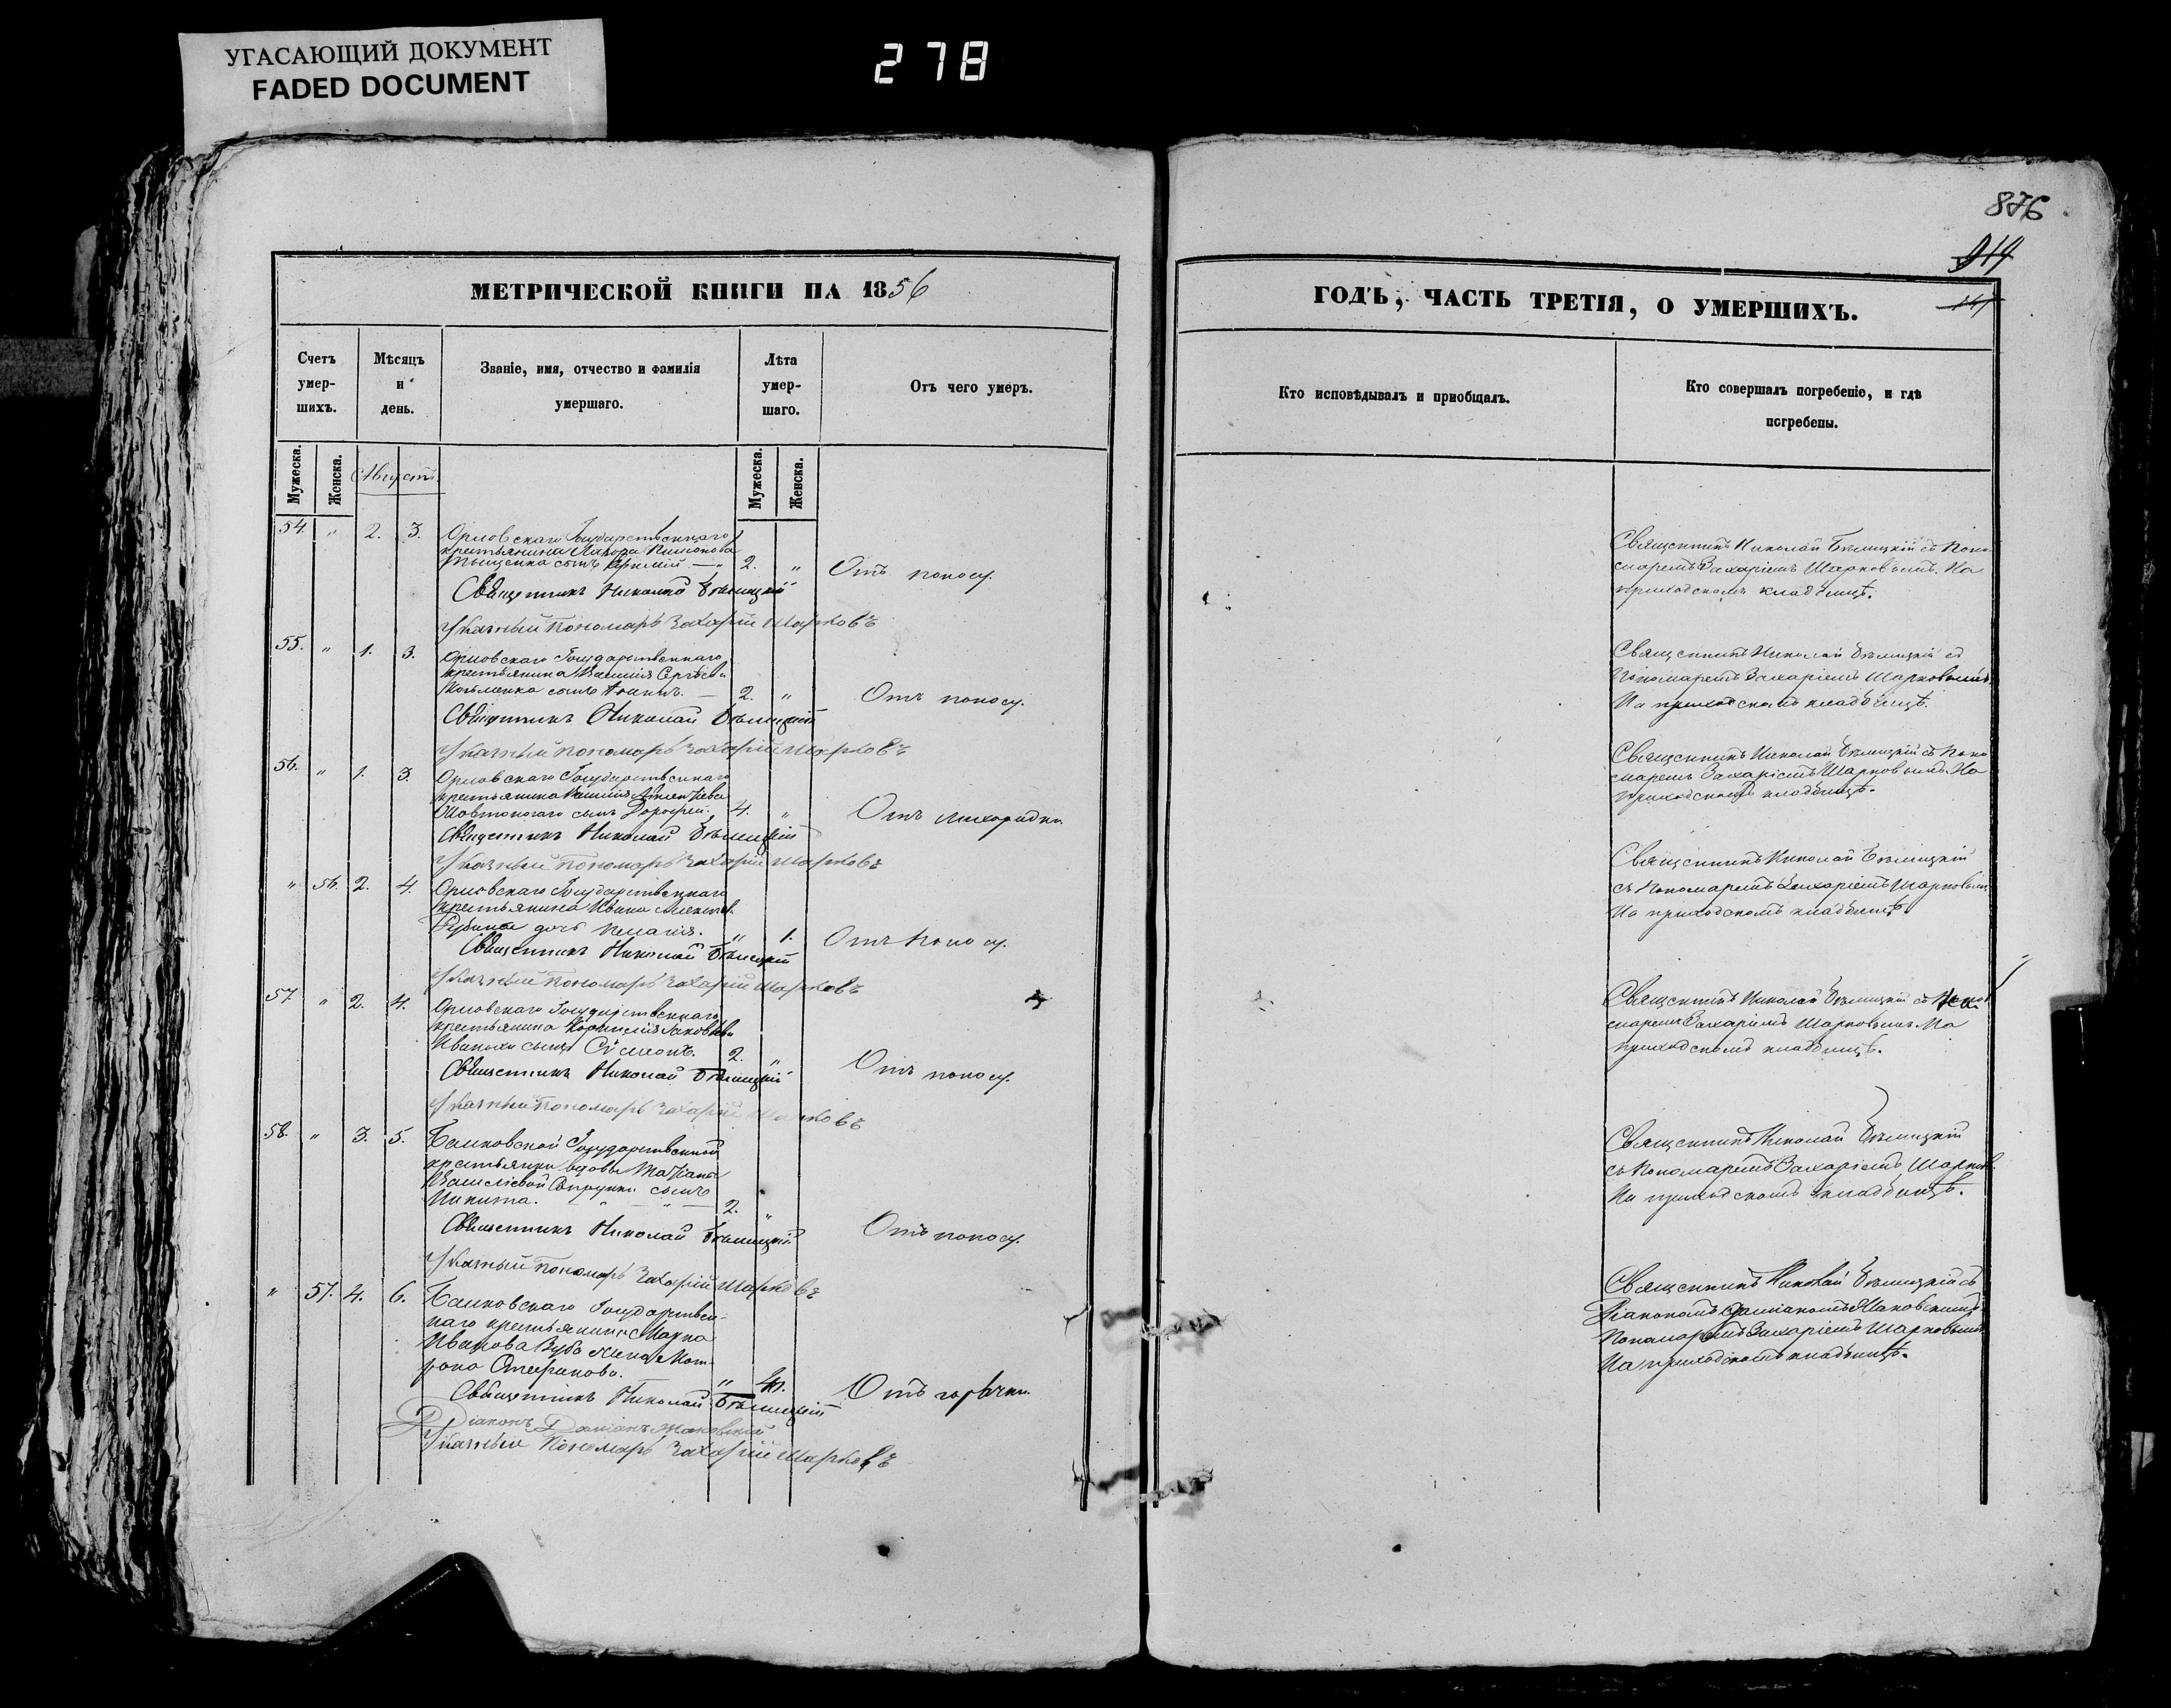 УГАСАЮЩИЙ ДОКУМЕНТ
FADED DOCUMENT
278
876
919
МЕТРИЧЕСКОЙ КНИГИ НА 1856
Счетъ умер-шихъ.
Мѣсяцъ и день.
Званіе, имя, отчество и фамилія умершаго.
Лѣта умер-шаго.
Отъ чего умеръ.
Мужеска.
Женска.
Августъ
Мужеска.
Женска.
54 " 2. 3. Орловскаго Государственнаго
крестьянина
сынъ 2. " Отъ поносу.
Священникъ Николай Бѣлицкій
Указный Пономарь Захарій Шарковъ
55. " 1. 3. Орловскаго Государственнаго
крестьянина Василія Сергѣева
сынъ 2. " Отъ поносу.
Священникъ Николай Бѣлицкій
Указный Пономарь Захарій Шарковъ
56. " 1. 3. Орловскаго Государственнаго
крестьянина Василія
сынъ Дорофей. 4. " Отъ лихорадки.
Священникъ Николай Бѣлицкій
Указный Пономарь Захарій Шарковъ
" 56. 2. 4. Орловскаго Государственнаго
крестьянина Ивана
дочь Пелагія. " 1. Отъ поносу.
Священникъ Николай Бѣлицкій
Указный Пономарь Захарій Шарковъ
57 " 2. 4. Орловскаго Государственнаго
крестьянина Корнилія Іаковлева
сынъ Сѵмеонъ. 2. " Отъ поносу.
Священникъ Николай Бѣлицкій
Указный Пономарь Захарій Шарковъ
58. " 3. 5. Государственной
крестьянки вдовы Татіаны
Василіевой сынъ
Никита. 2. " Отъ поносу.
Священникъ Николай Бѣлицкій
Указный Пономарь Захарій Шарковъ
" 57. 4. 6. Государствен-
наго крестьянина Марка
Иванова жена Мат-
рона Стефанова. " Отъ горячки.
Священникъ Николай Бѣлицкій
Діаконъ Даміанъ
Указный Пономарь Захарій Шарковъ
ГОДЪ, ЧАСТЬ ТРЕТІЯ, О УМЕРШИХЪ.
Кто исповѣдывалъ и пріобщалъ.
Кто совершалъ погребеніе, и гдѣ погребены.
Священникъ Николай Бѣлицкій съ Поно-
маремъ Захаріемъ Шарковымъ. На
приходскомъ кладбищѣ.
Священникъ Николай Бѣлицкій съ
Пономаремъ Захаріемъ Шарковымъ
На приходскомъ кладбищѣ.
Священникъ Николай Бѣлицкій съ Поно
маремъ Захаріемъ Шарковымъ. На
приходскомъ кладбищѣ.
Священникъ Николай Бѣлицкій
съ Пономаремъ Захаріемъ Шарковым
На приходскомъ кладбищѣ.
Священникъ Николай Бѣлицкій съ Поно
маремъ Захаріемъ Шарковымъ. На
приходскомъ кладбищѣ.
Священникъ Николай Бѣлицкій
съ Пономаремъ Захаріемъ Шарков.
На приходскомъ кладбищѣ.
Священникъ Николай Бѣлицкій съ
Діакономъ Даміаномъ
Пономаремъ Захаріемъ Шарковымъ
На приходскомъ кладбищѣ.